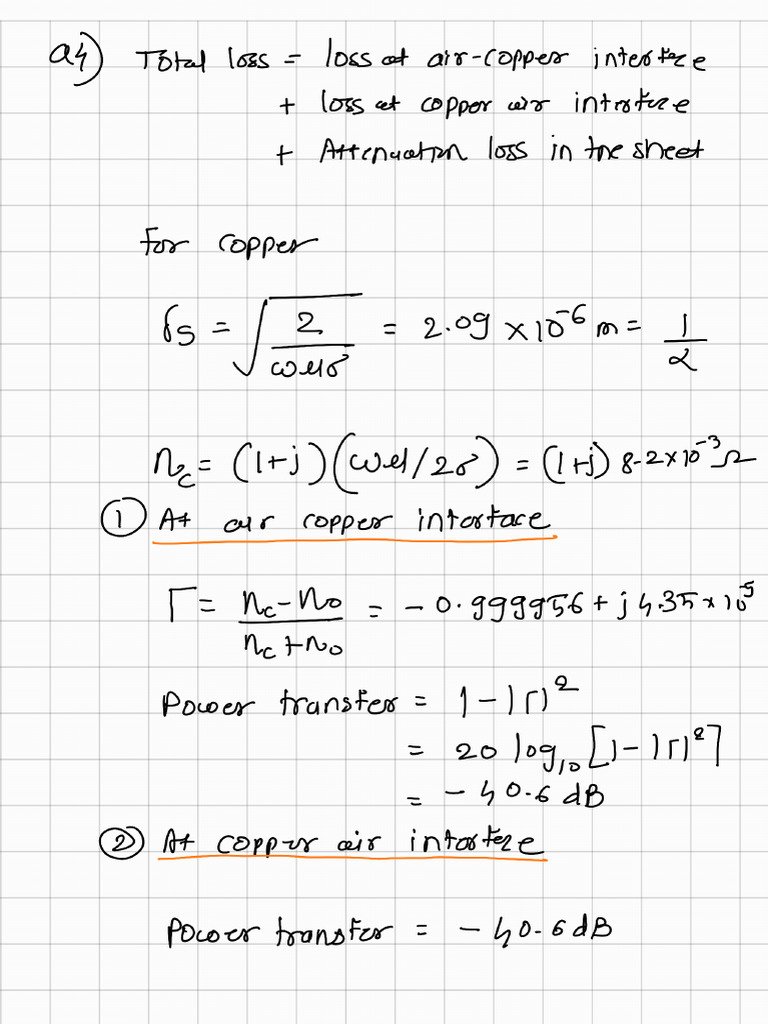 a4) Total loss = loss at air-copper interface
+ loss at copper air interface
+ Attenuation loss in the sheet
For copper
δs = √(2/ωμσ) = 2.09 × 10⁻⁶ m = 1/α
ηc = (1+j)(ωμ/2σ) = (1+j) 8.2×10⁻³ Ω
① At air copper interface
Γ = (ηc − η0)/(ηc + η0) = − 0.999956 + j 4.35 × 10⁻⁵
Power transfer = 1 − |Γ|²
= 20 log₁₀ [1 − |Γ|²]
= − 40.6 dB
② At copper air interface
Power transfer = − 40.6 dB